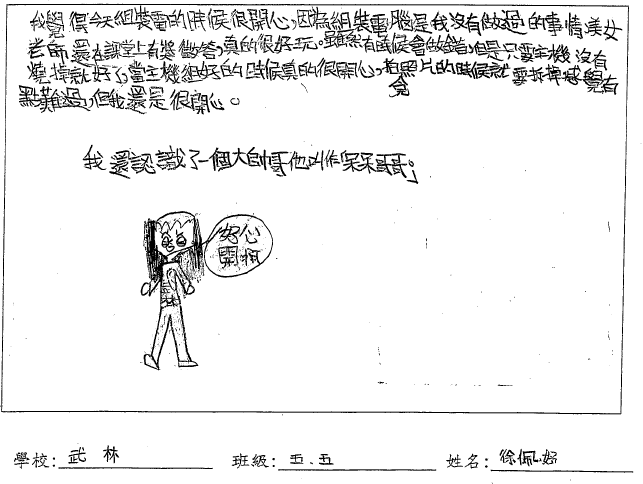 我覺得今天組裝電的時候很開心,因為組裝電腦是我沒有做過的事情,美女
老師還在課堂上有獎徵答,真的很好玩。雖然有時候會做錯,但是只要主機沒有
燒掉就好了,當主機組好的時候真的很開心,拍照片的時候就要拆掉感覺有
會
點難過,但我還是很開心。
我還認識了一個大帥哥他叫作呆呆哥哥;
好心
開啊
學校: 武林
班級: 五.五
姓名: 徐佩妤